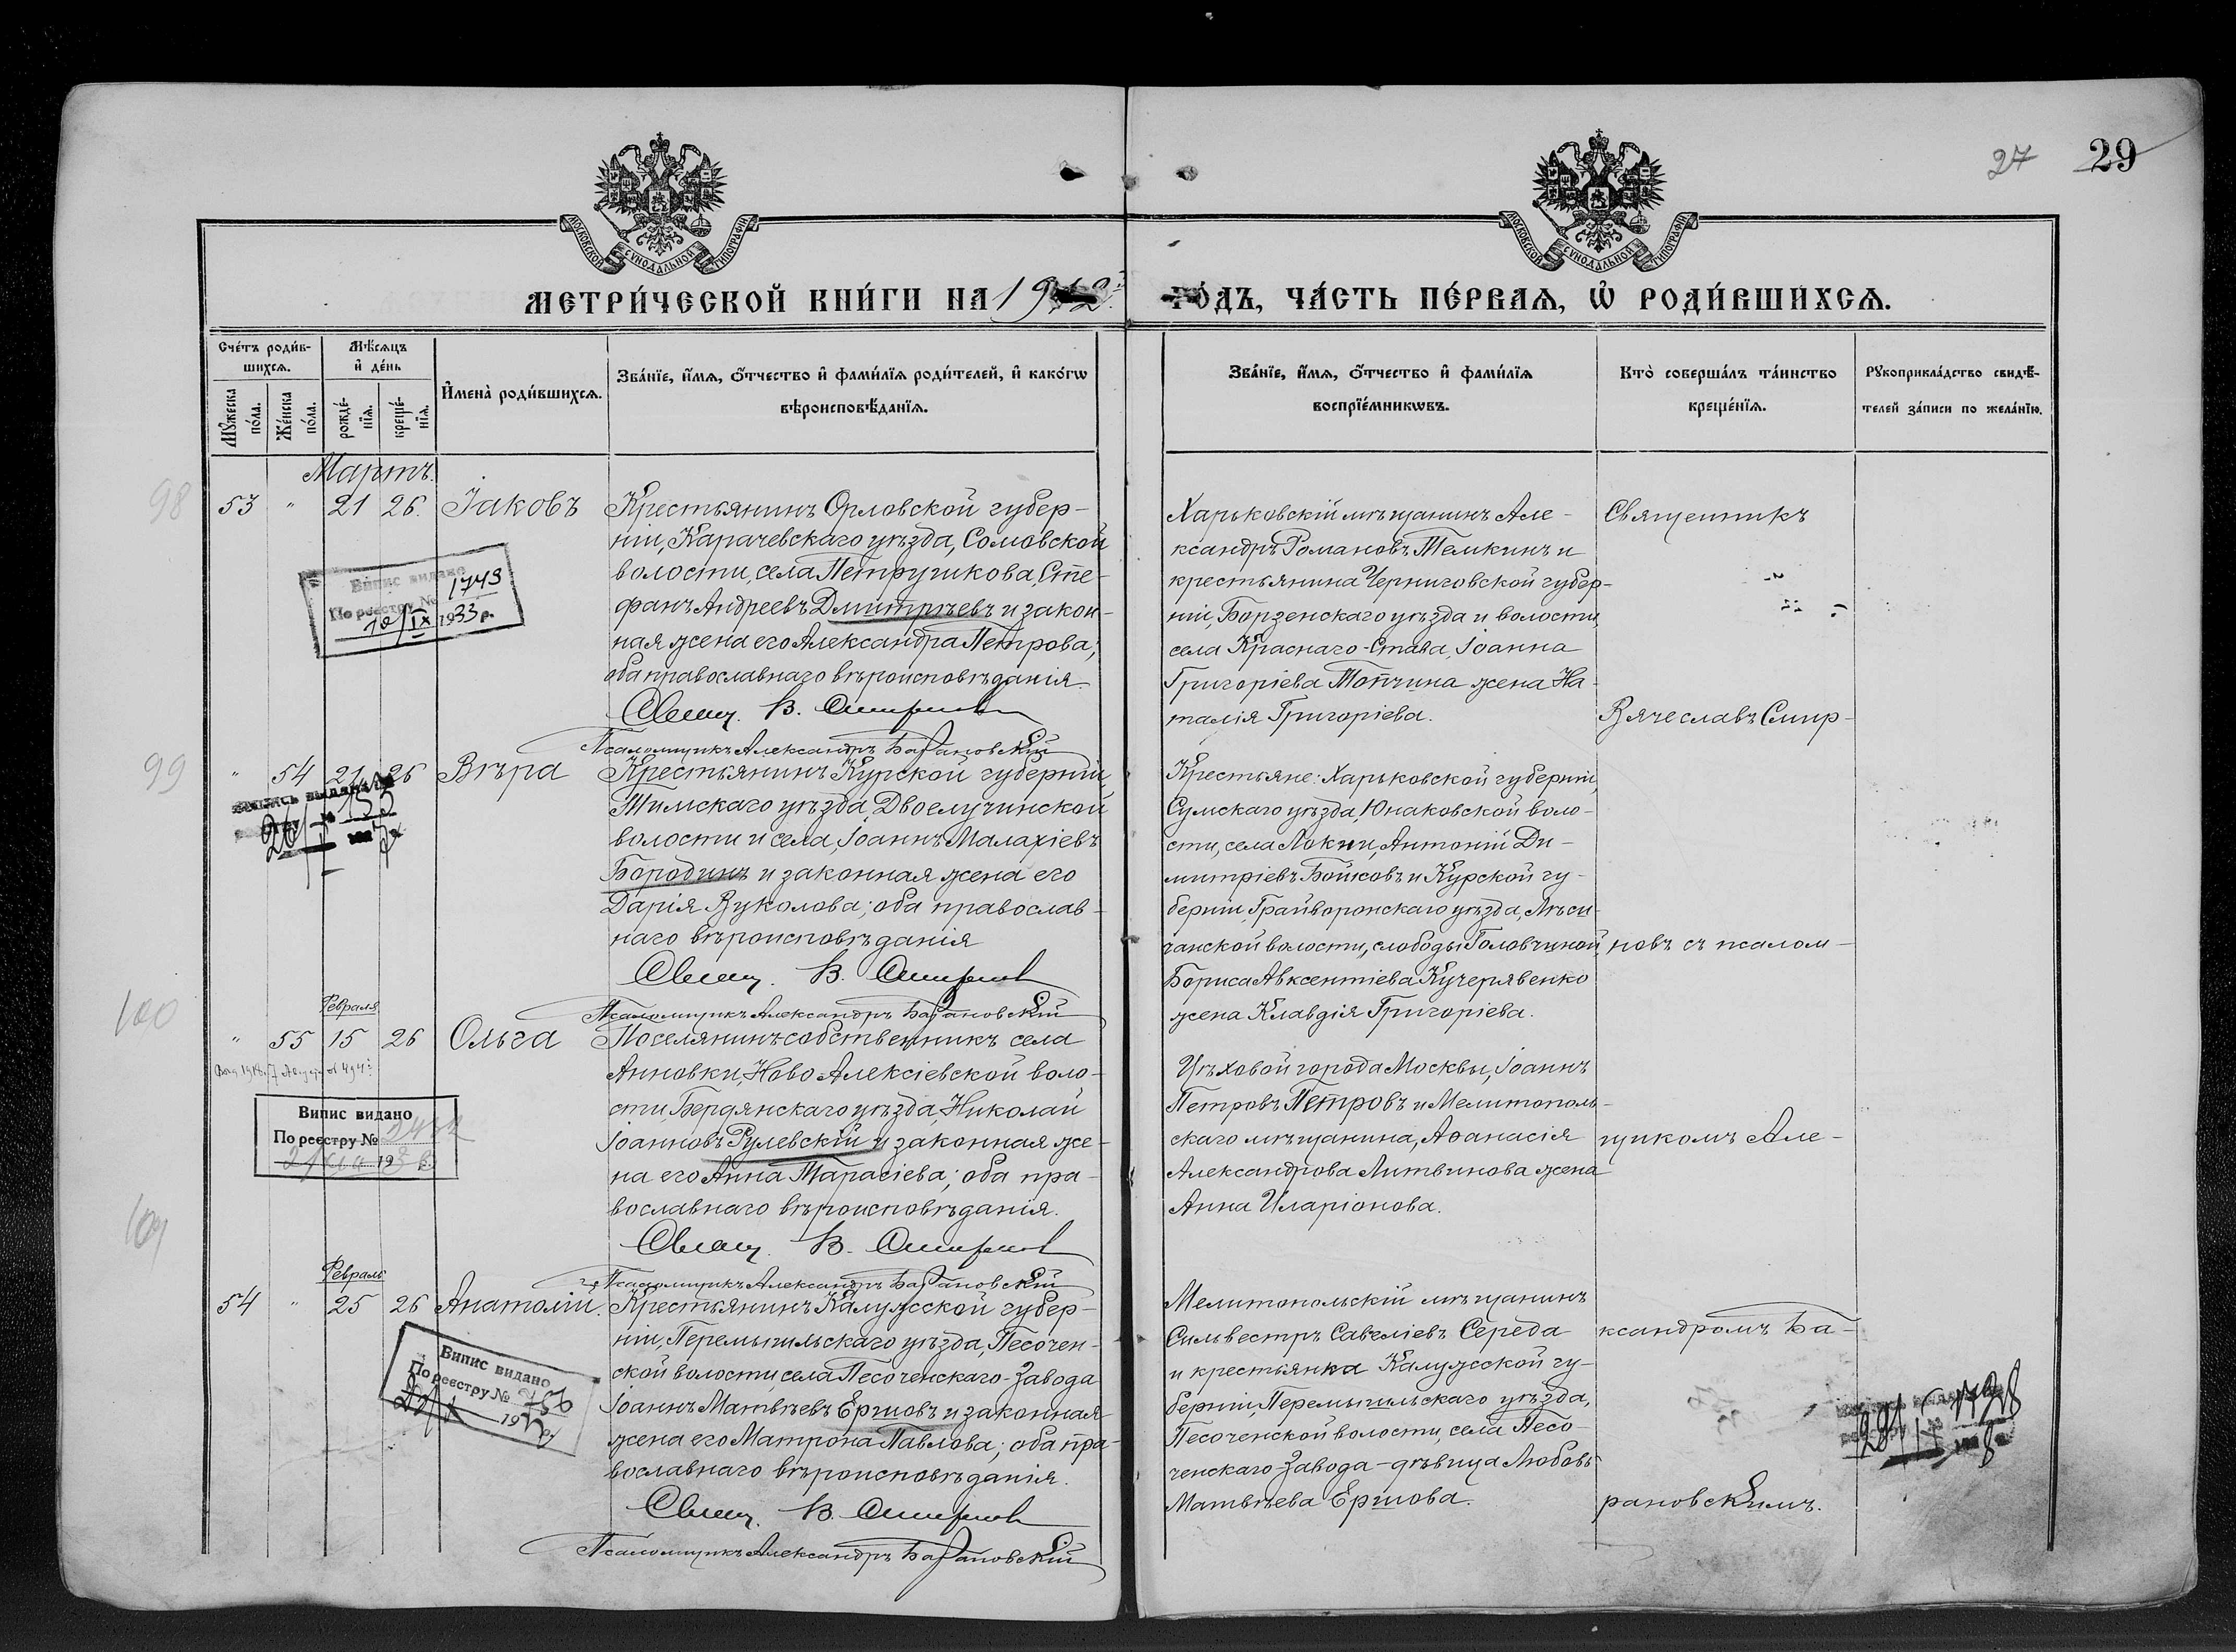 27 29
МОСКОВСКОЙ СѴНОДАЛЬНОЙ ТИПОГРАФІИ
МОСКОВСКОЙ СѴНОДАЛЬНОЙ ТИПОГРАФІИ
МЕТРИ́ЧЕСКОЙ КНИ́ГИ НА 1912 ГО́ДЪ, ЧА́СТЬ ПЕ́РВАѦ, Ѡ҆ РОДИ́ВШИХСѦ.
Сче́тъ роди́в-
шихсѧ.
Мꙋ́жеска
по́ла.
Же́нска
по́ла.
Мѣ́сѧцъ
и҆ де́нь
рожде́-
нїѧ.
креще́-
нїѧ.
И҆мена̀ роди́вшихсѧ.
Зва́нїе, и҆́мѧ, ѻ҆́тчество и҆ фами́лїѧ роди́телей, и҆ како́гѡ
вѣроисповѣ́данїѧ.
Зва́нїе, и҆́мѧ, ѻ҆́тчество и҆ фами́лїѧ
воспрїе́мникѡвъ.
Кто̀ соверша́лъ та́инство
креще́нїѧ.
Рꙋкоприкла́дство свидѣ́-
телей за́писи по жела́нїю.
Мартъ.
98
53 " 21 26. Іаковъ
Крестьянинъ Орловской губер-
ніи, Карачевскаго уѣзда, Сомовской
волости, села Петрушкова, Сте-
фанъ Андреевъ Дмитріевъ и закон-
ная жена его Александра Петрова;
оба православнаго вѣроисповѣданія.
Свящ. В. Смирнов
Псаломщикъ Александръ Барановскій
Харьковскій мѣщанинъ Але-
ксандръ Романовъ Темкинъ и
крестьянина Черниговской губер-
ніи, Борзенскаго уѣзда и волости,
села Краснаго-Става, Іоанна
Григоріева Топчина жена На-
талія Григоріева.
Священникъ
Вячеславъ Смир-
Випис видано
По реестру № 1743
10/IX 1933 р.
99
" 54 21 26 Вѣра
Крестьянинъ Курской губерніи,
Тимскаго уѣзда, Двоелучинской
волости и села, Іоаннъ Малахіевъ
Бородинъ и законная жена его
Дарія Вуколова; оба православ-
наго вѣроисповѣданія
Свящ. В. Смирнов
Псаломщикъ Александръ Барановскій
Крестьяне: Харьковской губерніи,
Сумскаго уѣзда, Юнаковской воло-
сти, села Локни, Антоній Ди-
митріевъ Бойковъ и Курской гу-
берніи, Грайворонскаго уѣзда, Лѣси-
чанской волости, слободы Головчиной,
Бориса Авксентіева Кучерявенко
жена Клавдія Григоріева.
новъ съ псалом-
100
Февраля
" 55 15 26 Ольга
Поселянинъ собственникъ села
Анновки, Ново Алексіевской воло-
сти, Бердянскаго уѣзда, Николай
Іоанновъ Рулевскій и законная же-
на его Анна Тарасіева; оба пра-
вославнаго вѣроисповѣданія.
Свящ. В. Смирнов
Псаломщикъ Александръ Барановскій
Цѣховой города Москвы, Іоаннъ
Петровъ Петровъ и Мелитополь-
скаго мѣщанина, Аѳанасія
Александрова Литвинова жена
Анна Иларіонова.
щикомъ Але-
Випис видано
По реестру №
19
101
Февраль
54 " 25 26 Анатолій.
Крестьянинъ Калужской губер-
ніи, Перемышльскаго уѣзда, Песочен-
ской волости, села Песоченскаго-Завода
Іоаннъ Матвѣевъ Ершовъ и законная
жена его Матрона Павлова; оба пра-
вославнаго вѣроисповѣданія.
Свящ. В. Смирнов
Псаломщикъ Александръ Барановскій
Мелитопольскій мѣщанинъ
Сильвестръ Савеліевъ Середа
и крестьянка Калужской гу-
берніи, Перемышльскаго уѣзда,
Песоченской волости, села Песо-
ченскаго-Завода - дѣвица Любовь
Матвѣева Ершова.
ксандромъ Ба-
рановскимъ.
Випис видано
По реестру №
19